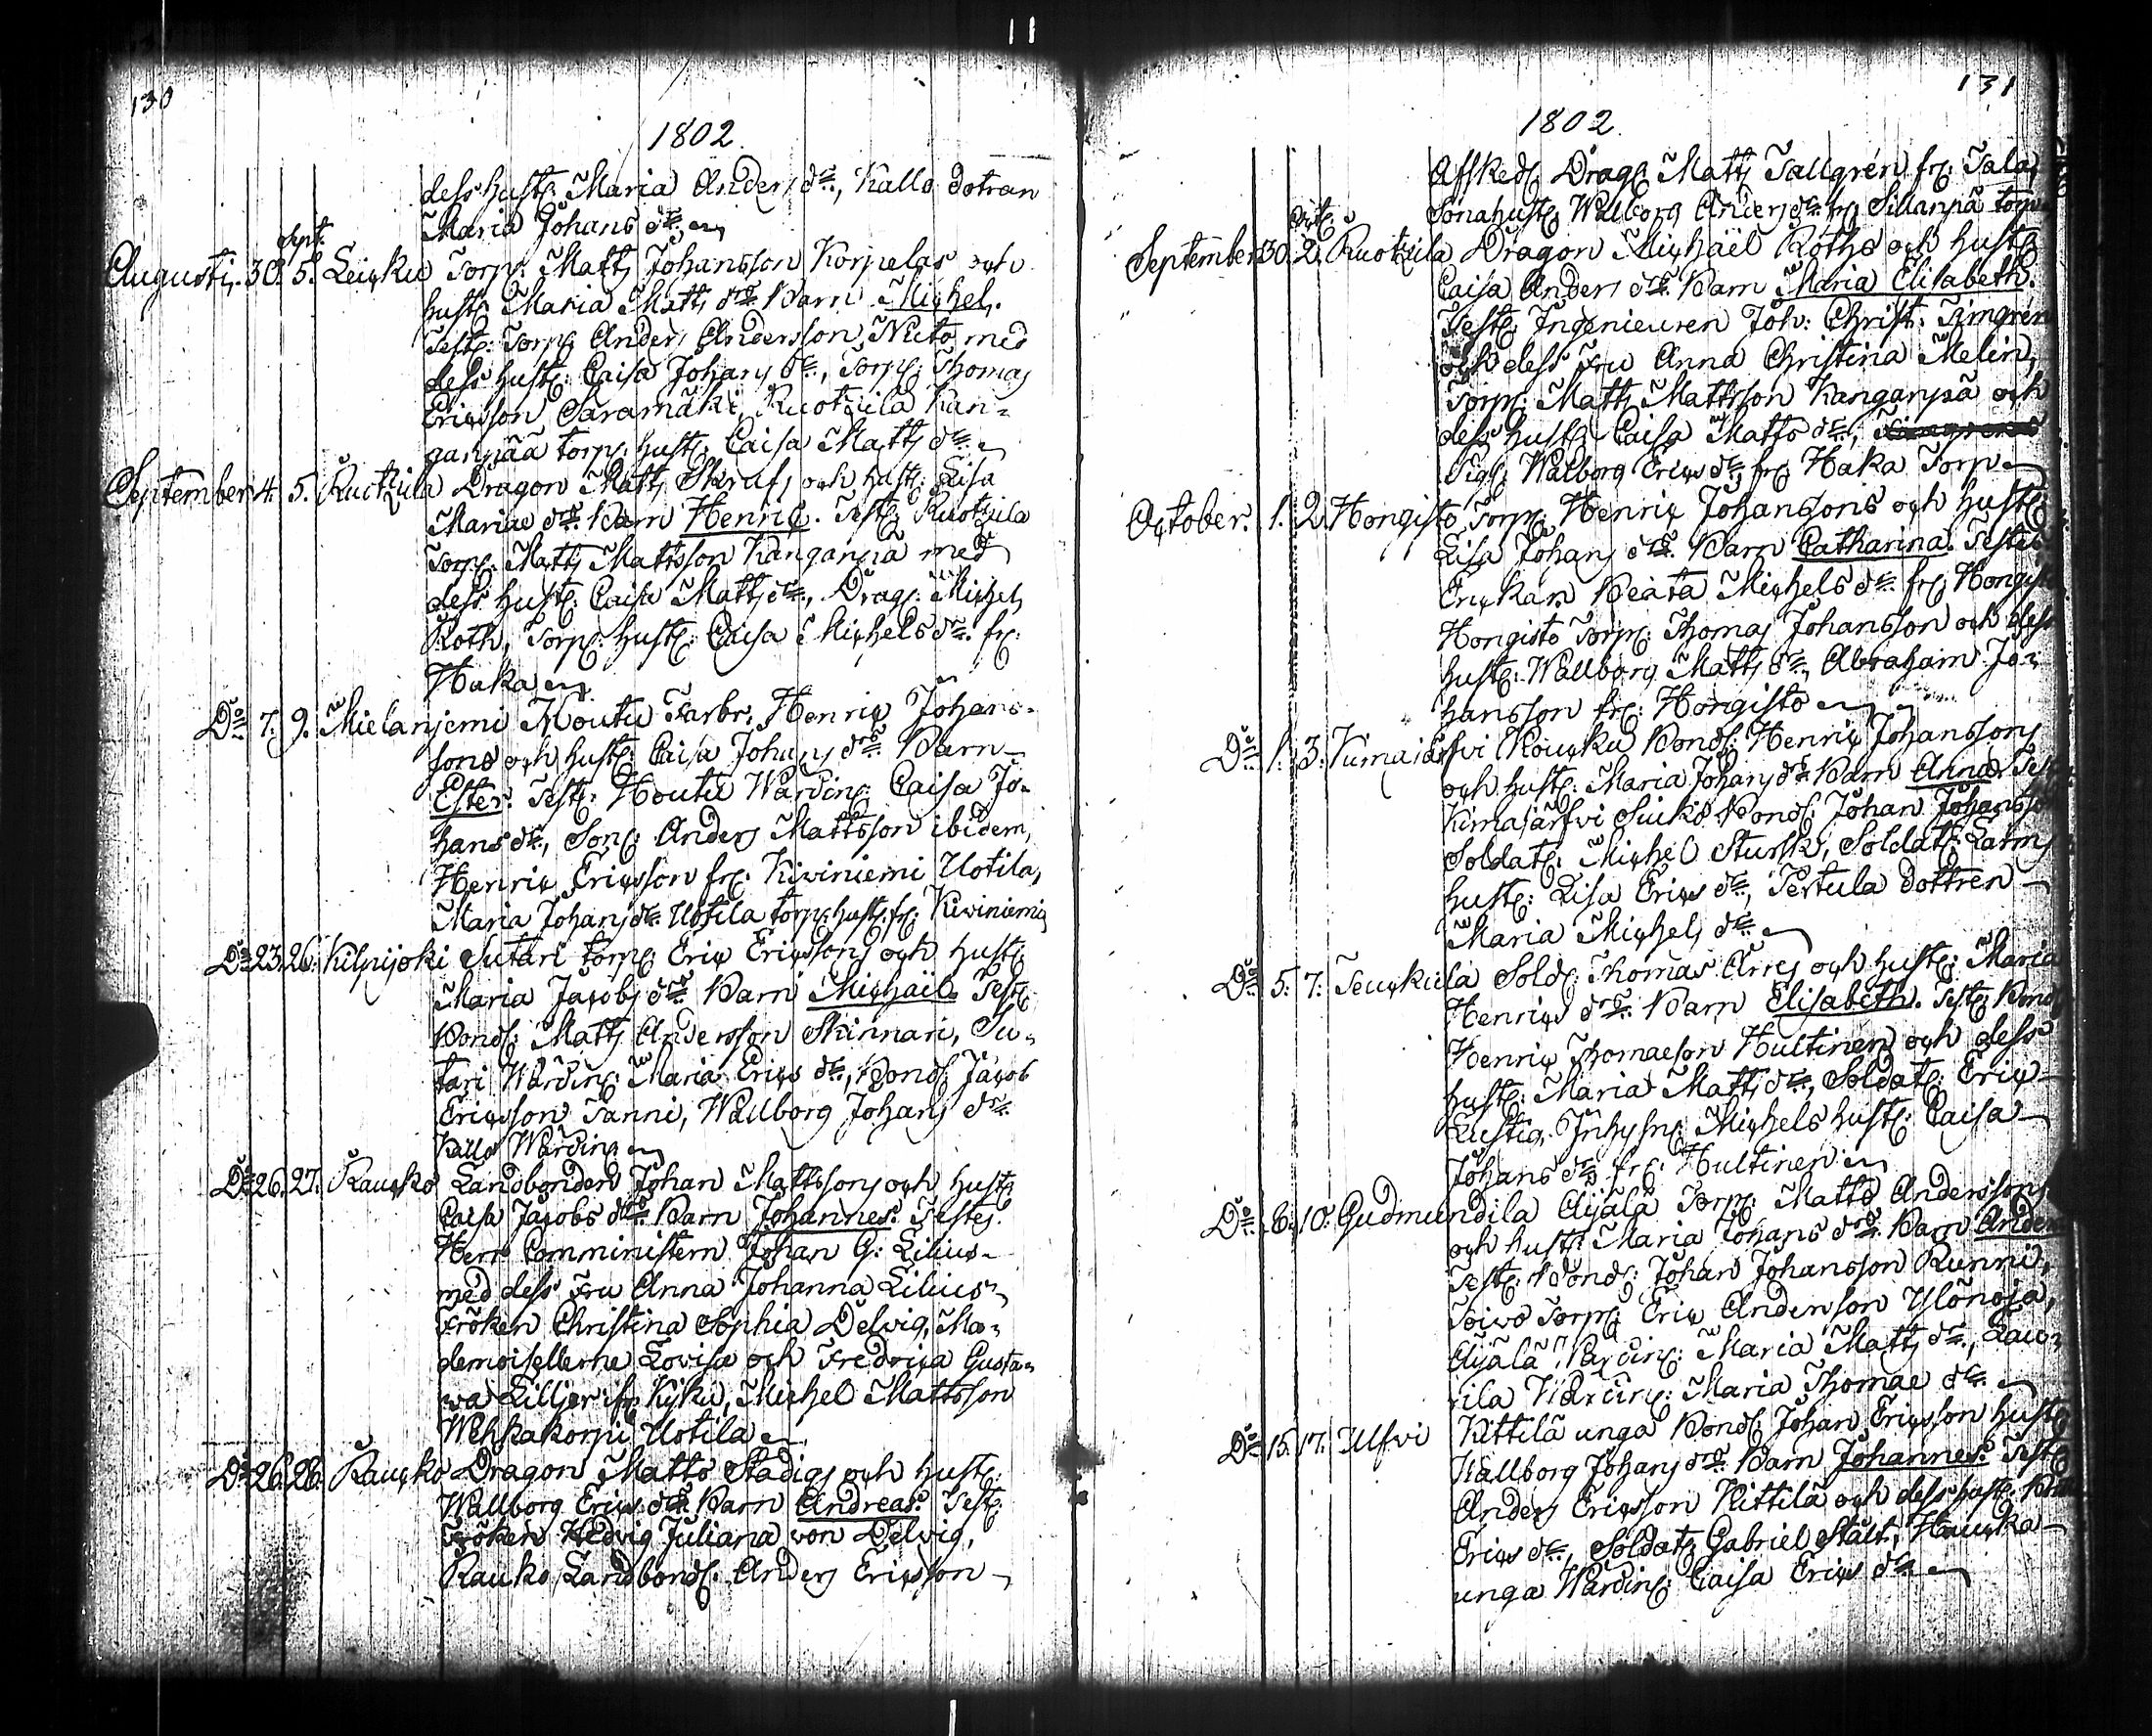 130
1802
dess hustr: Maria Anders dr., Kallo dotran
Maria Johans dr.
Sept.
Augusti. 30. 5. Leicku Torp: Matts Johansson Korpelas och
hustr: Maria Matts drs Barn Michel.
Test: Torp: Anders Andersson Nuto med
dess hustr: Caisa Johans dr., Torp: Thomas
Ericsson Saramäki, Ruotzila Kan-
ganpää torp: hustr: Caisa Matts dr.
September 4. 5. Ruotzila Dragon Matts Skrufs och hustr: Lisa
Mariae drs. Barn Henric. Test: Ruotzila
Torp: Matts Mattsson Kanganpä med
dess hustr: Caisa Matts dr., Drag: Michel
Roth, Torp: hustr: Caisa Michels dr. fr:
Haka
Do 7. 9. Mielanjemi Moutu Farbr. Henric Johans-
sons och hustr: Caisa Johans drs Barn
Ester. Test: Moutu Wärdin: Caisa Jo-
hans dr., Son: Anders Mattsson ibidem,
Henric Ericsson fr: Kiviniemi Uotila,
Maria Johans dr. Uotila torp: hustr: fr: Kiviniemi
Do 23. 26. Kilpijoki Sutari torp: Eric Ericssons och hustr:
Maria Jacobs drs Barn Michaël Test:
Bond: Matts Andersson Skinnari, Su-
tari Wärdin: Maria Erics dr., Bond: Jacob
Ericsson Tanni, Wallborg Johans dr.
Kallo Wärdin
Do 26. 27. Raucko Landbonden Johan Mattssons och hustr:
Caisa Jacobs drs Barn Johannes. Testes.
Herr Comministern Johan G: Lilius
med dess Fru Anna Johanna Lilius
Fröken Christina Sophia Delvig, Ma-
demoisellerne Lovisa och Fredrica Gusta-
va Lilljer: fr: Kjku, Michel Mattsson
Wehkakorpi Uotila
Do 26. 28. Raucko Dragon Matts Stadigs och hustr:
Wallborg Erics drs Barn Andreas. Test:
Fröken Hedvig Juliana von Delvig,
Rauko Landbond: Anders Ericsson
131
1802
Afsked: Drag: Matts Tallgrén fr: Tala,
Sonahustr: Wallborg Anders dr. fr: Sillanpä torp
Oct:
September 30. 2. Ruotzila Dragon Michaël Roths och hustr:
Caisa Anders drs. Barn Maria Elisabeth.
Test: Ingenieuren Joh: Christ: Timgrén
och dess Fru Anna Christina Melin,
Torp: Matts Mattsson Kanganpä och
dess hustr: Caisa Matts dr.,
Pig: Walborg Erics dr. fr: Haka Torp
October. 1. 2. Hongisto Torp: Henric Johanssons och hustr:
Lisa Johans drs. Barn Catharina. Testes:
Enckan Beata Michels dr. fr: Hongisto
Hongisto Torp: Thomas Johansson och dess
hustr: Wallborg Matts dr., Abraham Jo-
hansson fr: Hongisto
Do 1. 3. Kimajärfvi Koucku Bond: Henric Johanssons
och hustr: Maria Johans drs Barn Anna Test:
Kimajärfvi Suiko Bond: Johan Johansson
Soldat: Michel Stursk, Soldat: Larms
hustr: Lisa Erics dr., Pertula dottren
Maria Michels dr.
Do 5. 7. Teuckula Sold: Thomas Arres och hustr: Maria
Henrics drs. Barn Elisabeth. Test: Bond:
Henric Thomaeson Hultinen och dess
hustr: Maria Matts dr., Soldat: Eric
Lustig, Inhys: Michels hustr: Caisa
Johans dr. fr: Hultinen
Do 8. 10. Gudmundila Äijälä Torp: Matts Anderssons
och hustr: Maria Johans drs. Barn Anders
Test: Bond: Johan Johansson Runni,
Toivo Torp: Eric Andersson Ylönoja,
Äijälä Wärdin: Maria Matts dr., Lau-
rila Wärdin: Maria Thomae dr.
Do 15. 17. Ulfvi Kittilä unga Bond: Johan Ericsson hustr:
Wallborg Johans drs. Barn Johannes. Test:
Anders Ericsson Kittilä och dess hustr:
Erics dr., Soldat: Gabriel Stält, Haucka
unga Wärdin: Caisa Erics dr.